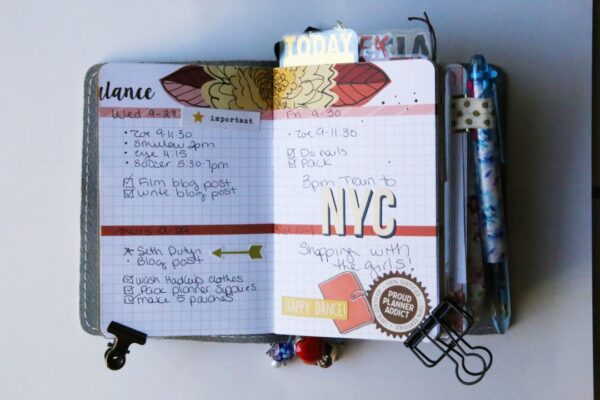 alance
Wed 9-28
important
• Zoe 9-11:30
• Smullew 2pm
• eye 4:15
• Soccer 5:30-7pm
Film blog post
Write blog post
Thurs 9-29
Seth Duty
• Blog post
Wash clothes
Pack planner supplies
make 5 patches
TODAY
Fri 9-30
• Zoe 9-11:30
Do nails
Pack
3pm Train to
NYC
Shopping with
the girls!
HAPPY DANCE!
PROUD
PLANNER
ADDICT